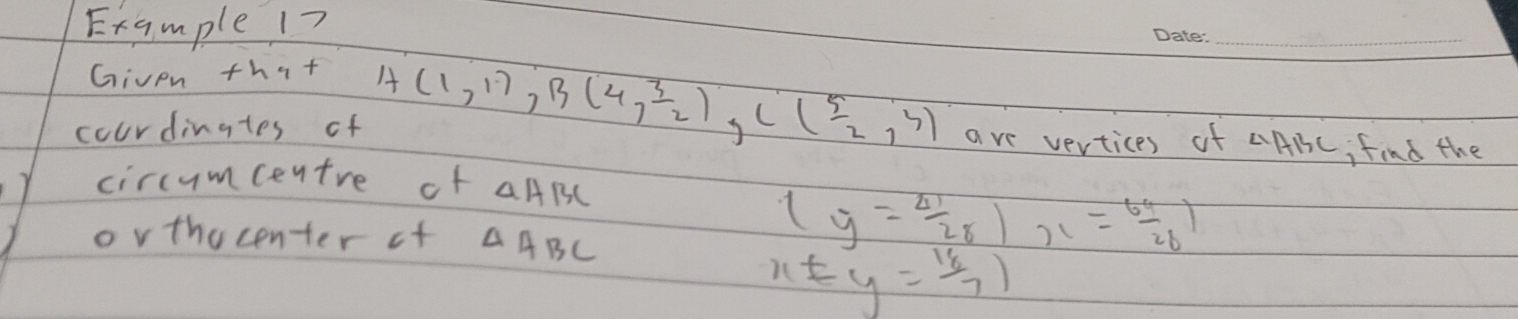 Example 17
Date:
Given that A(1,1), B(4,3/2), C(5/2,3) are vertices of ΔABC, find the
coordinates of
circumcentre of ΔABC (y = 41/28) x = 69/28)
orthocenter of ΔABC x = y = 18/7)